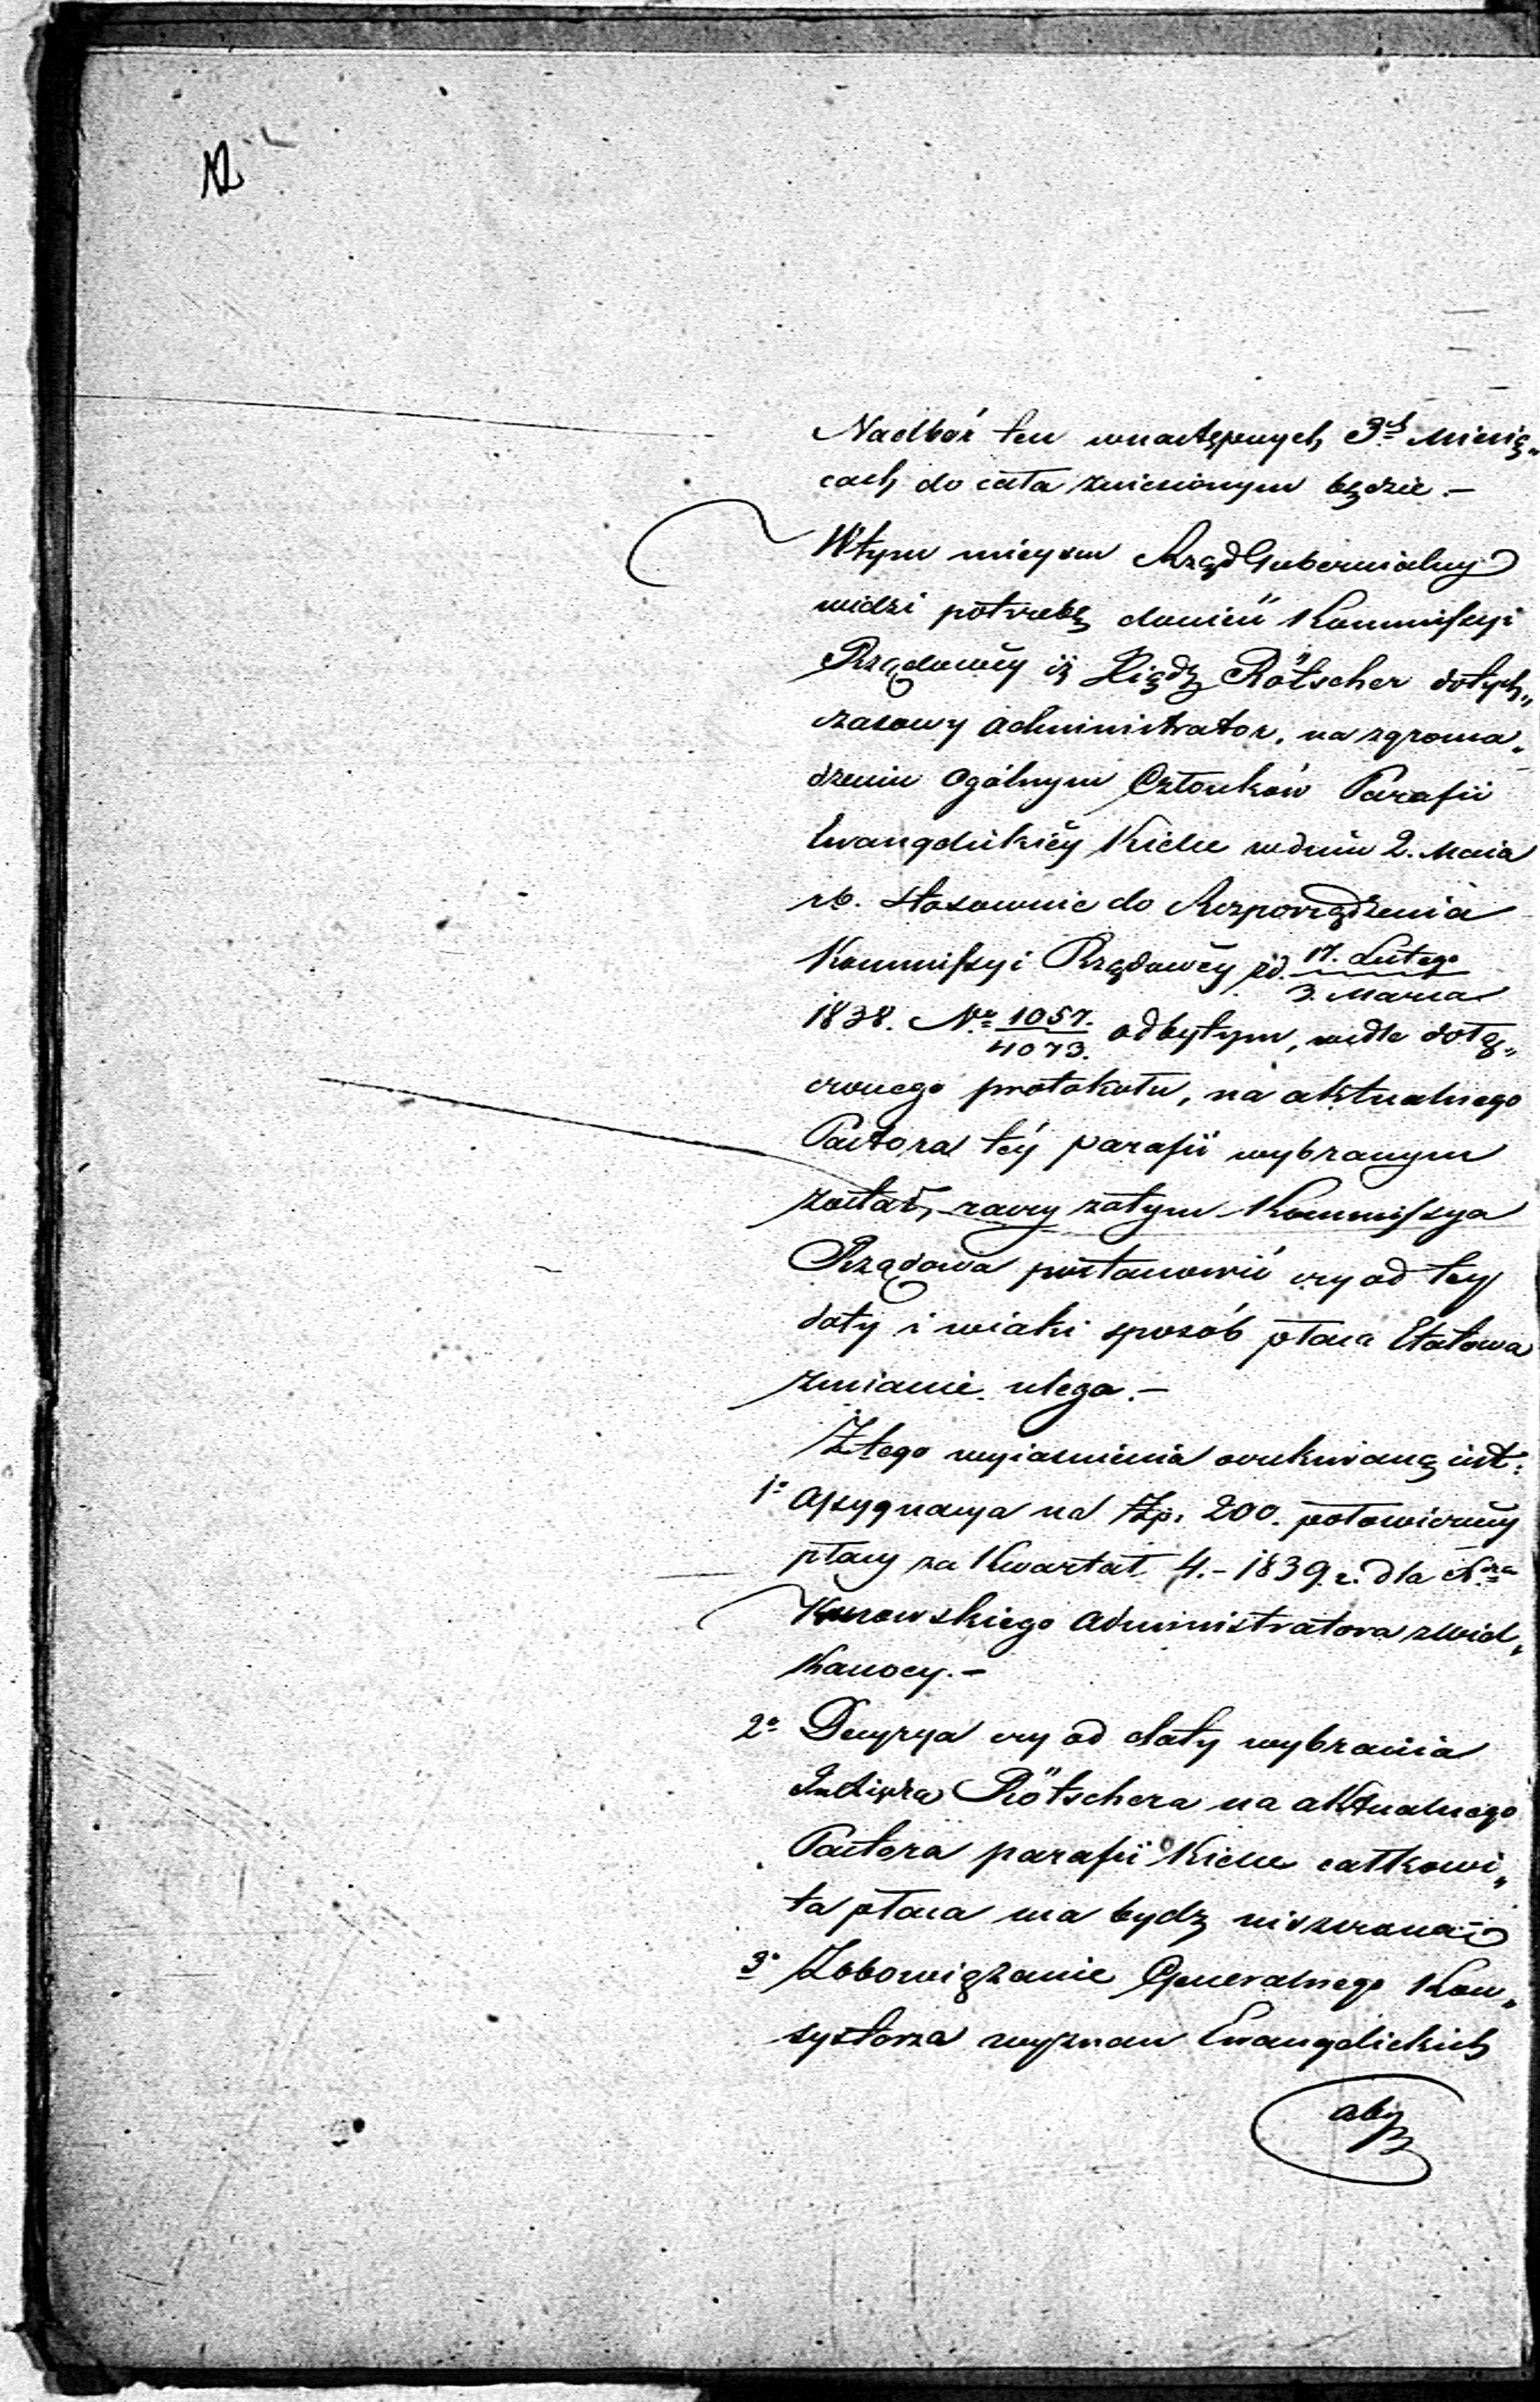 12
Nadbór ten wnastępnych 3ch Miesią„
cach do cała zniesionym będzie.—
Wtym mieyscu Rząd Gubernialny
widzi potrzebę donieść Kommissyi
Rządowéy iż Xiądz Rötscher dotych„
czasowy administrator, na zgroma„
dzeniu ogólnym Członków Parafii
Ewangelickiéy Kicku wdniu 2. Maia
rb. stosownie do Rozporządzenia
Kommissyi Rządowéy zd. 17. Lutego
3. Marca
1838. No 1057.
4073. odbytym, wedle dołą„
czonego protokołu, na aktualnego
Pastora téy parafii wybranym
został, raczy zatym Kommissya
Rządowa postanowić czy od tey
daty i wiaki sposób płaca Etatowa
zmianie ulega.—
Ztego wyiaśnienia oczekiwaną iest:
1o Assygnacya na Zp. 200. połowiczney
płacy za Kwartał 4.– 1839. r. dla
administratora zWiel„
kanocy.—
2o Decyzya czy od daty wybrania
Xiędza Rötschera na aktualnego
Pastora parafii Kicku całkowi„
ta płaca ma bydz uiszczona i
3o Zobowiązanie Generalnego Kon„
systorza wyznań Ewangelickich
aby